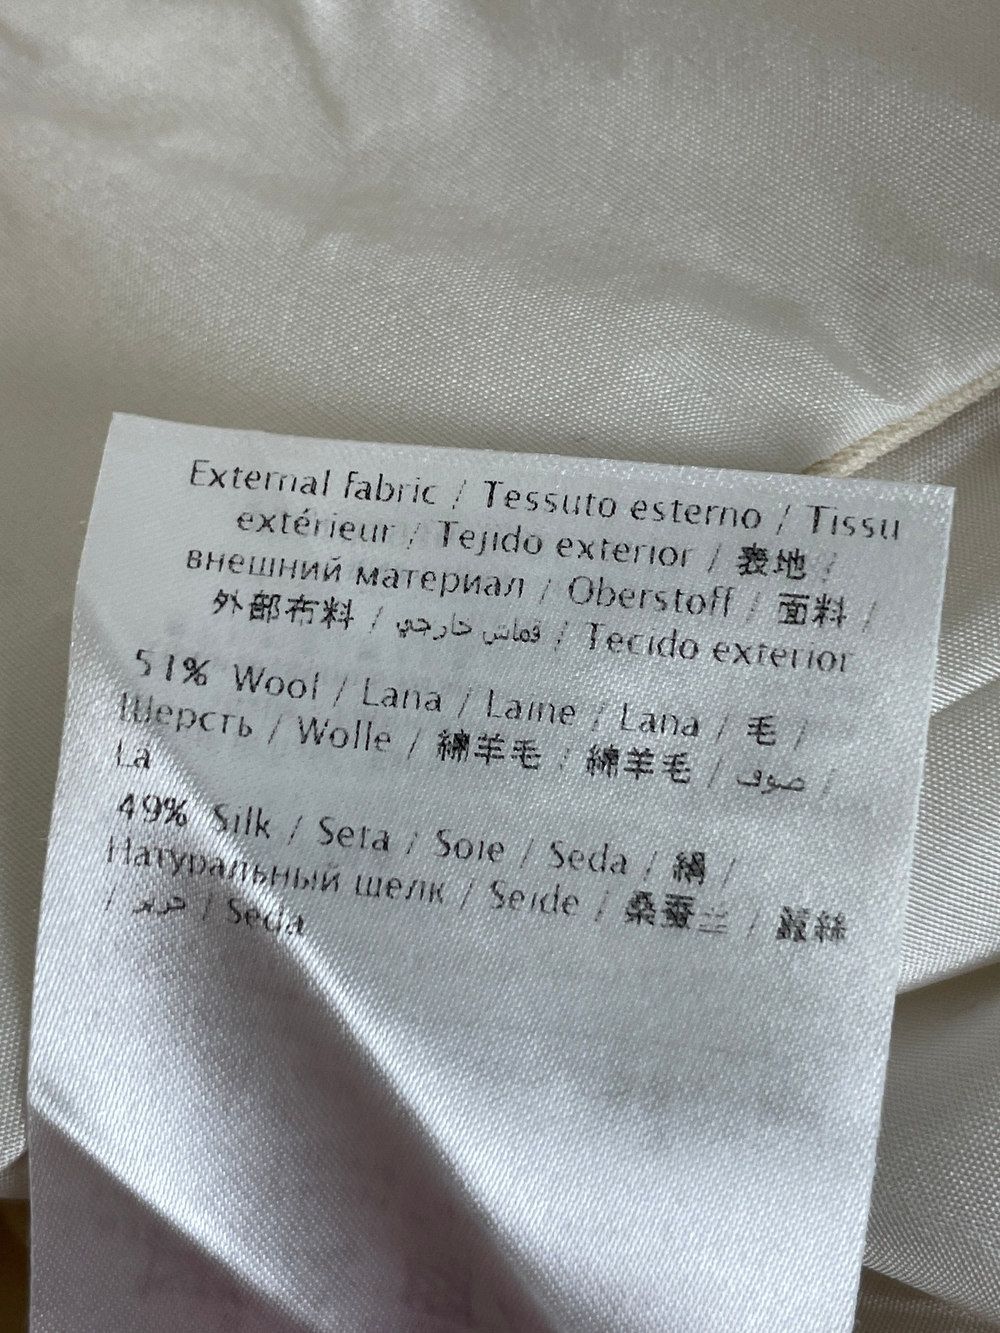 External fabric / Tessuto esterno / Tissu
extérieur / Tejido exterior / 表地 /
внешний материал / Oberstoff / 面料 /
外部布料 / قماش خارجي / Tecido exterior
51% Wool / Lana / Laine / Lana / 毛 /
Шерсть / Wolle / 綿羊毛 / 綿羊毛 / صوف /
La
49% Silk / Seta / Soie / Seda / 絹 /
Натуральный шелк / Seide / 桑蚕丝 / 蠶絲
/ حرير / Seda